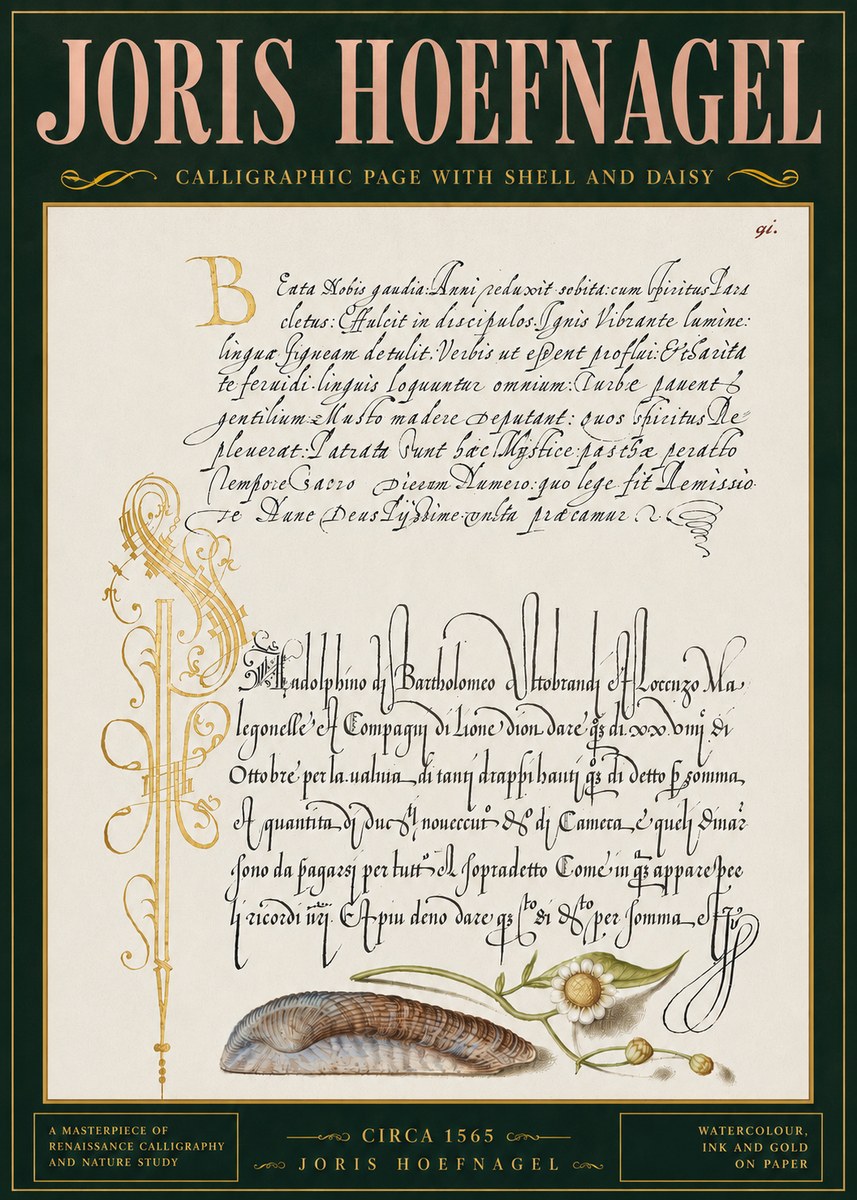 JORIS HOEFNAGEL
CALLIGRAPHIC PAGE WITH SHELL AND DAISY
gi.
BEata Nobis gaudia: Anni reduxit sobita: cum spiritus Para
cletus: Effulcit in discipulos. Ignis Vibrante lumine:
linguæ figueam detulit. Verbis ut essent proflui: Et Charita
te feruidi. linguis loquuntur omnium: Turbæ pauent
gentilium: Musto madere deputant: quos spiritus Re-
pleuerat: Patrata sunt hæc Mystice: paschæ peracto
Tempore Sacro Dierum Numero: quo lege fit Remissio.
Te Nunc Deus Pijssime præcamur
Andolphino di Bartholomeo Ma
legonelle et Compagni di Lione dion dare di. xxviiij di
Ottobre per la ualuta di tanti drappi hauti di detto somma
A quantita di di Camera e queli
sono da pagarsi per el sopradetto Come in appare per
li ricordi piu deno dare di per somma
A MASTERPIECE OF
RENAISSANCE CALLIGRAPHY
AND NATURE STUDY
CIRCA 1565
JORIS HOEFNAGEL
WATERCOLOUR,
INK AND GOLD
ON PAPER